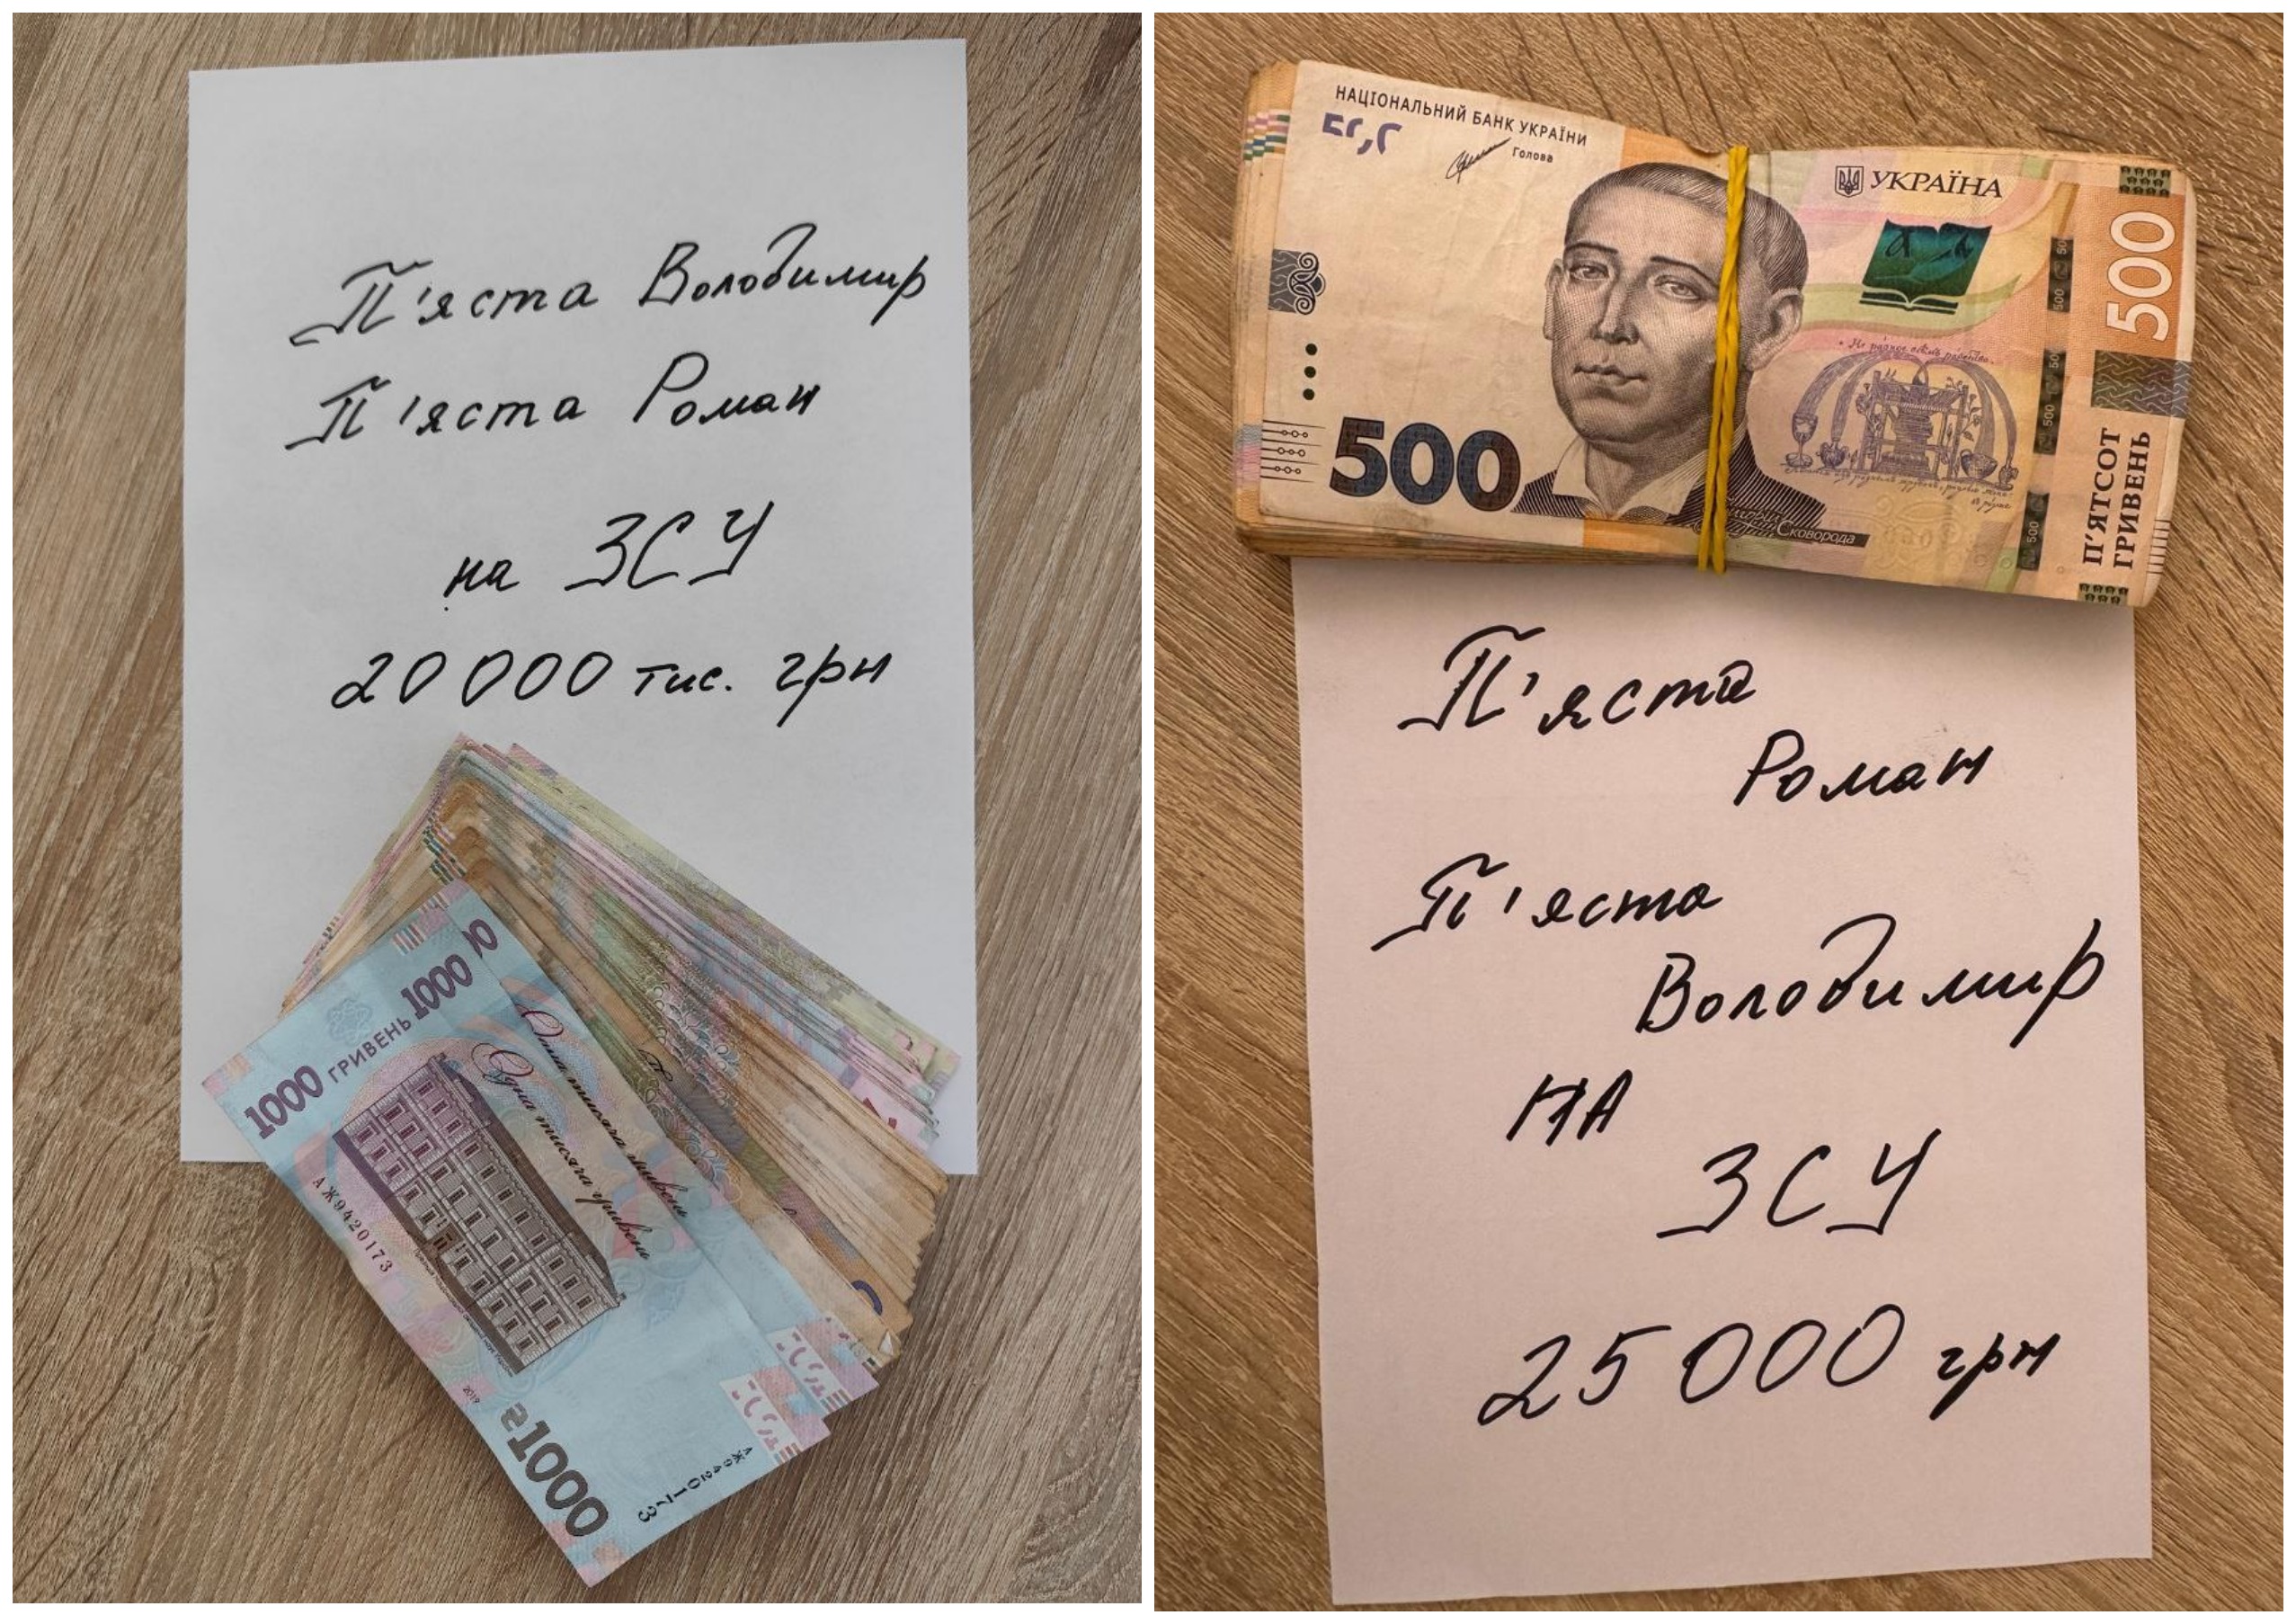 П'яста Володимир
П'яста Роман
на ЗСУ
20 000 тис. грн
1000 ГРИВЕНЬ 1000
Одна тисяча гривень
Одна тисяча гривень
АЖ9420173
2019
1000
АЖ9420173
НАЦІОНАЛЬНИЙ БАНК УКРАЇНИ
Голова
УКРАЇНА
500
500
П'ЯТСОТ
ГРИВЕНЬ
Сковорода
П'яста
Роман
П'яста
Володимир
НА
ЗСУ
25 000 грн